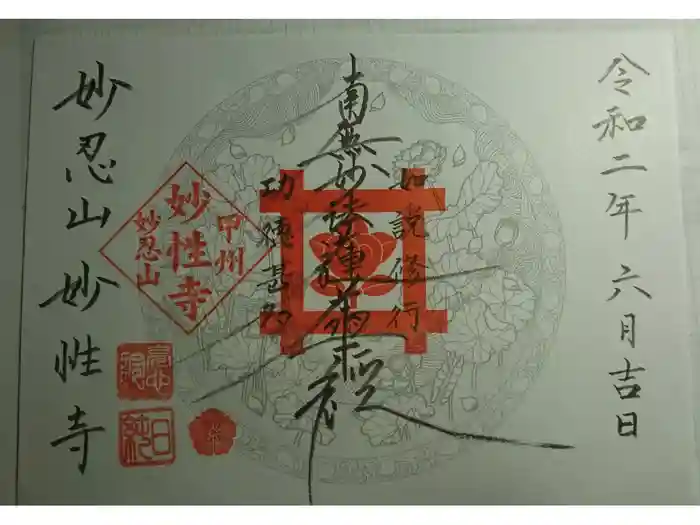 令和二年六月吉日
如説修行
南無妙法蓮華経
功徳甚多
甲州
妙性寺
妙忍山
妙忍山妙性寺